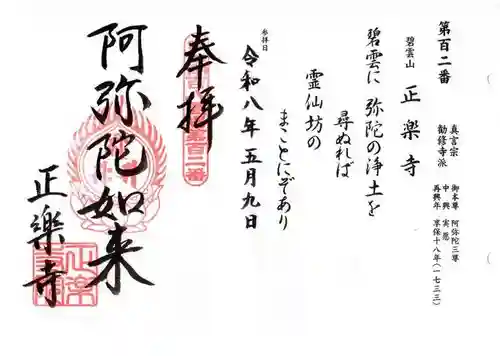 第百二番
真言宗
勧修寺派
御本尊 阿弥陀三尊
中興 実恵
再興年 享保十八年(一七三三)
碧雲山
正楽寺
碧雲に 弥陀の浄土を
尋ぬれば
霊仙坊の
まことにぞあり
参拝日
令和八年五月九日
奉拝
阿弥陀如来
正楽寺